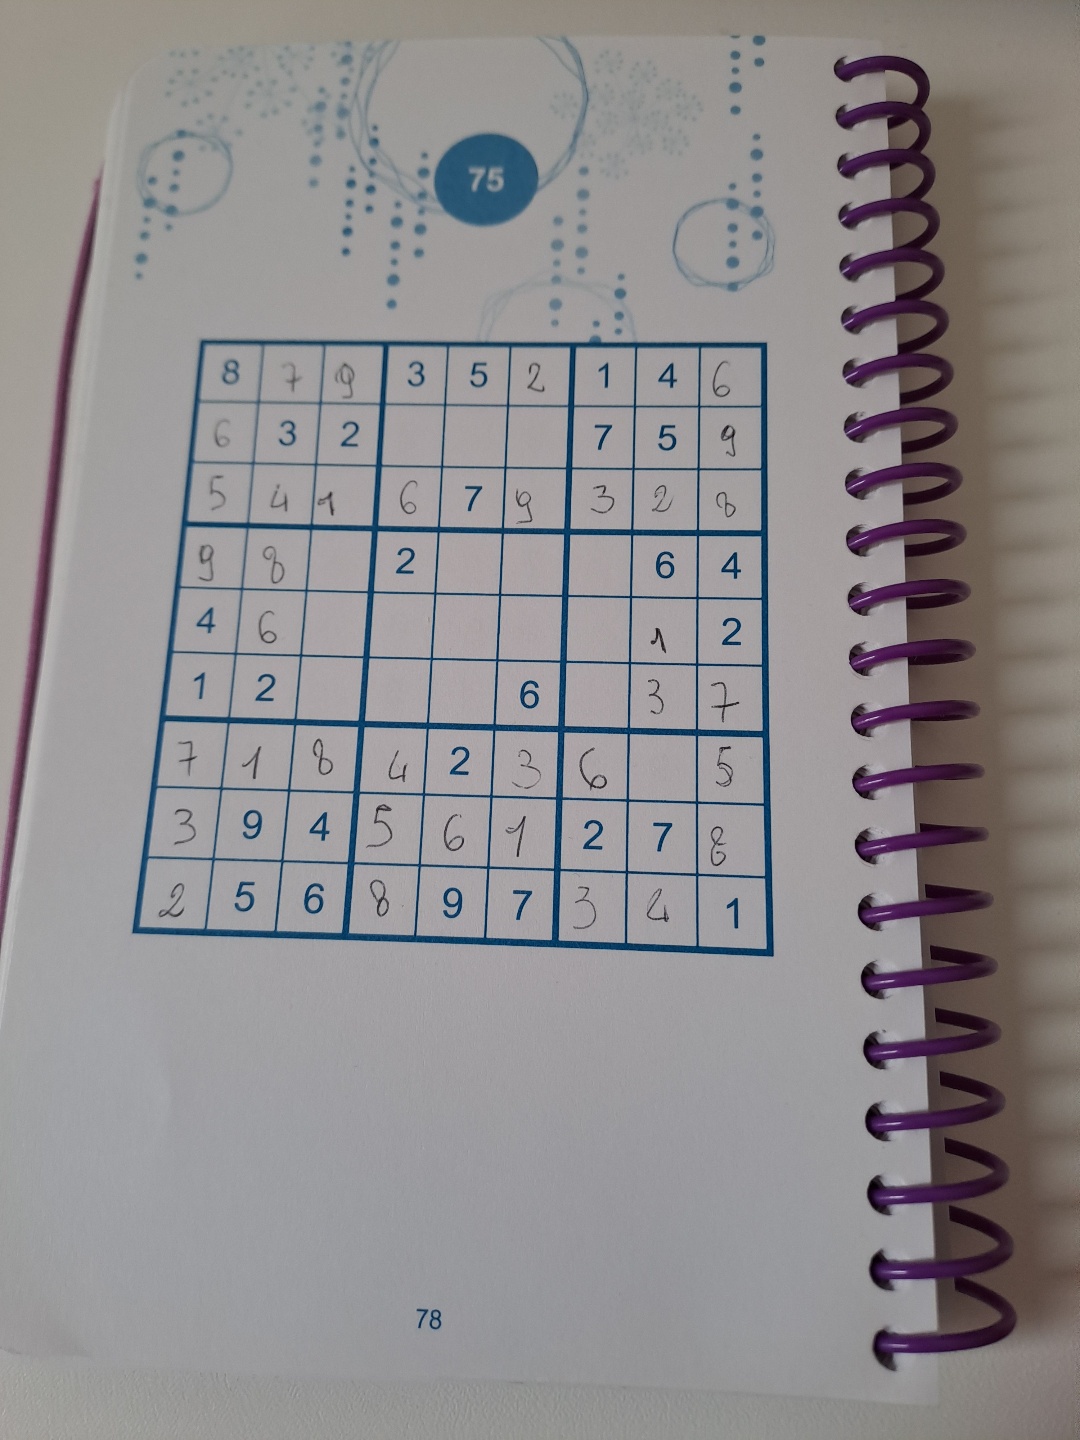 75
8 7 9 3 5 2 1 4 6
6 3 2 7 5 9
5 4 1 6 7 9 3 2 8
9 8 2 6 4
4 6 1 2
1 2 6 3 7
7 1 8 4 2 3 6 5
3 9 4 5 6 1 2 7 8
2 5 6 8 9 7 3 4 1
78